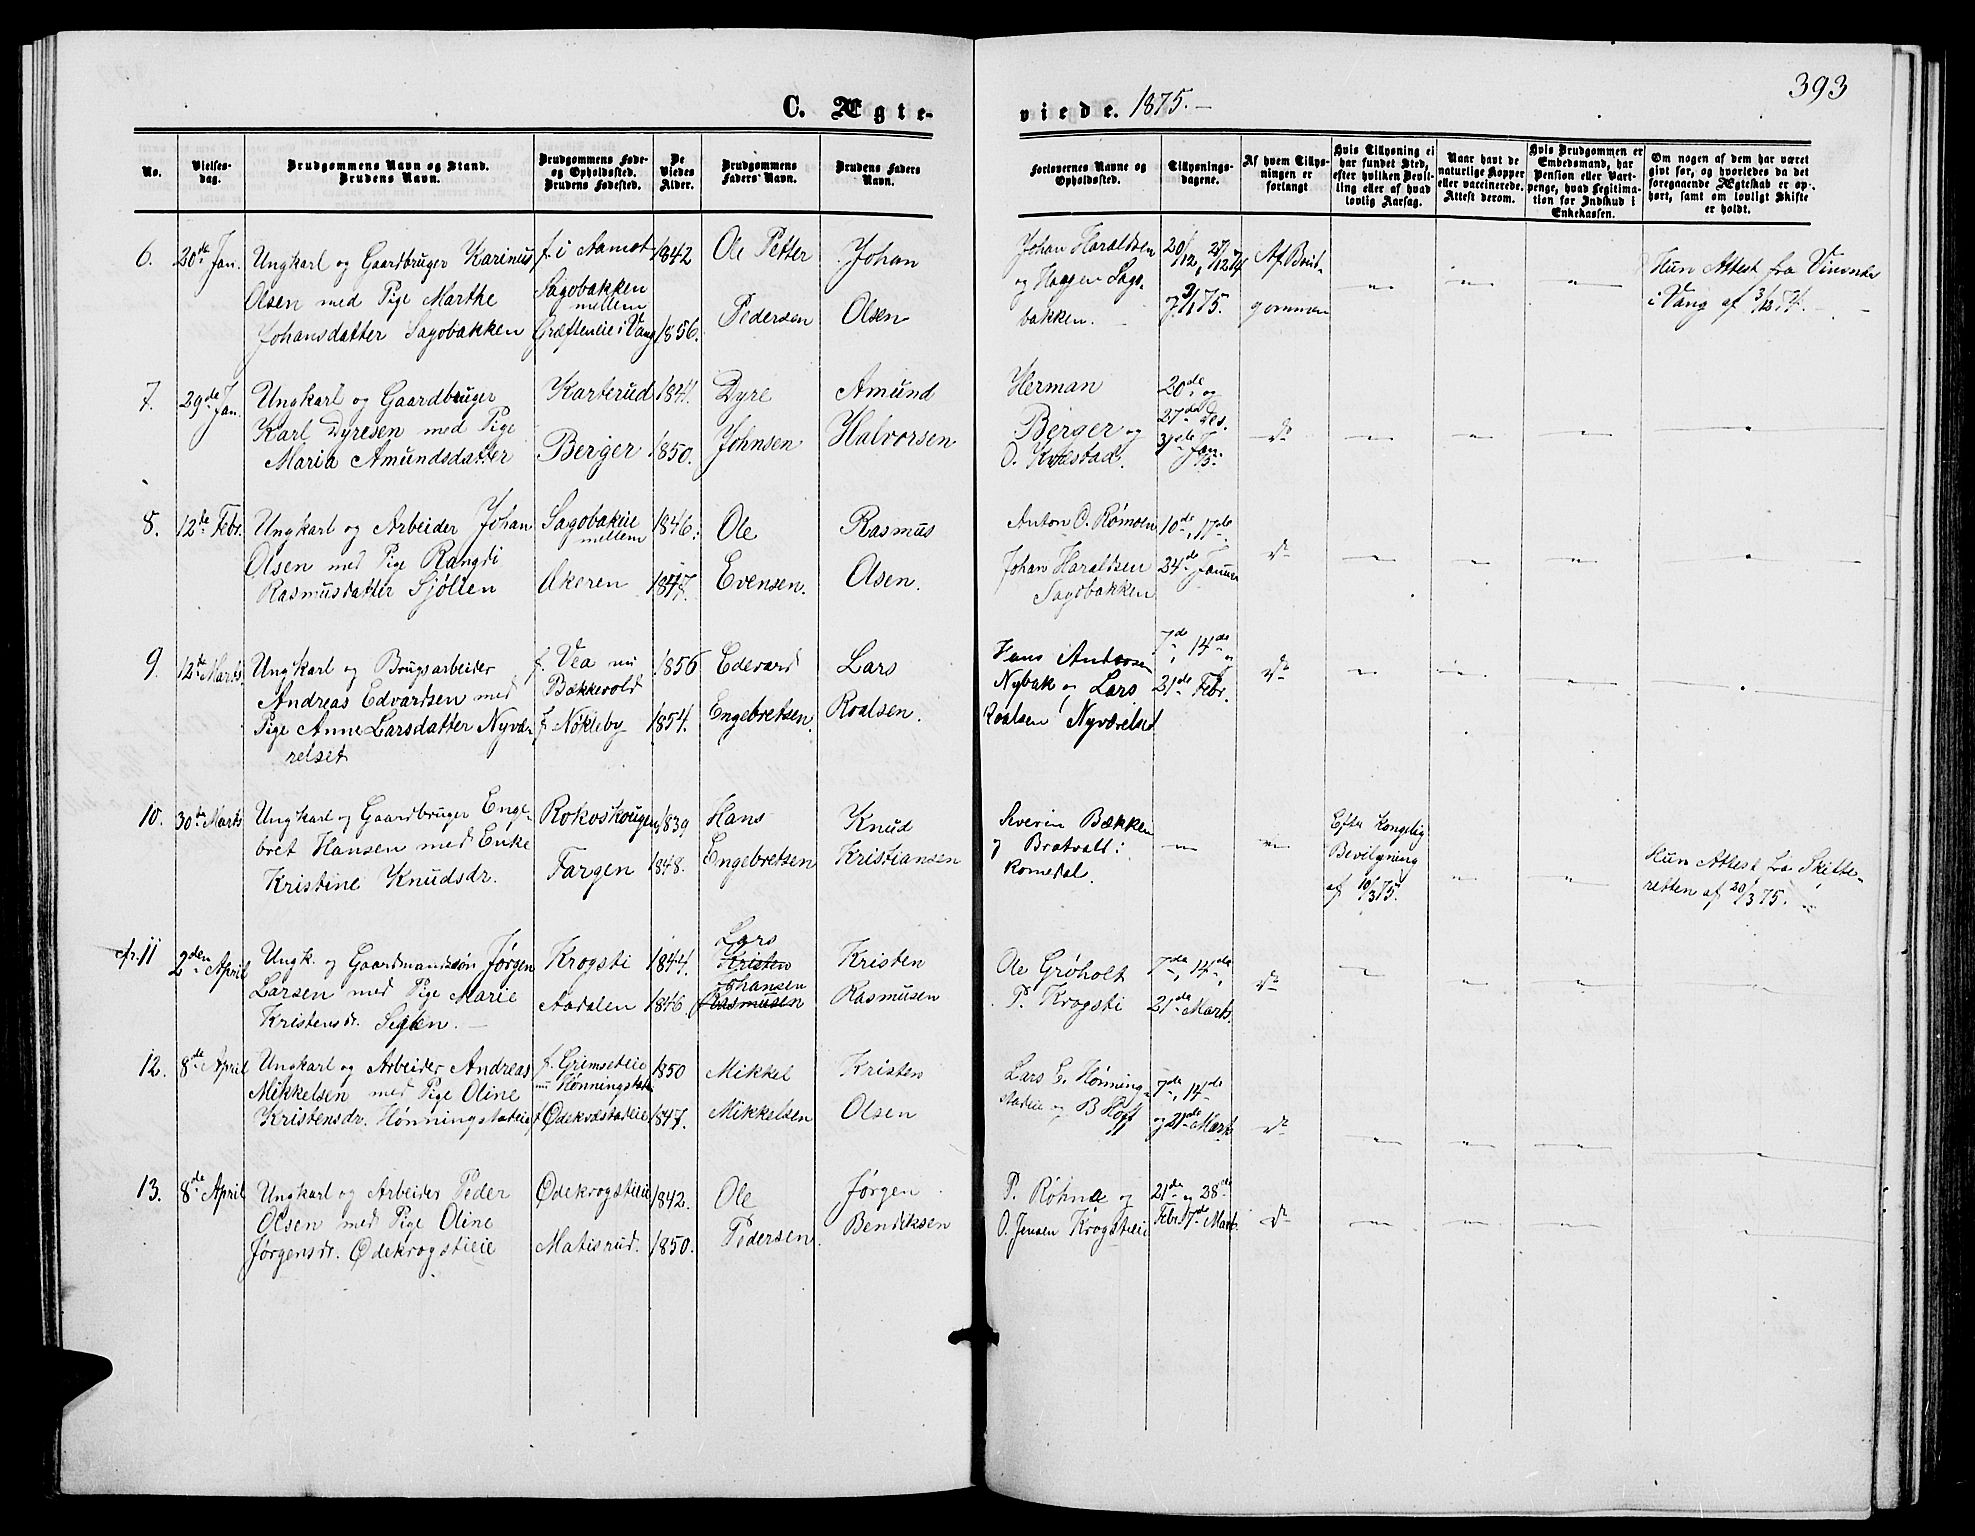 393
C. Ægte-
viede. 1875.
No.
Vielses-
dag.
Brudgommens Navn og Stand.
Brudens Navn.
Brudgommens Føde-
og Opholdssted.
Brudens Fødested.
De
Viedes
Alder.
Brudgommens
Faders Navn.
Brudens Faders
Navn.
Forlovernes Navne og
Opholdssted.
Tillysnings-
dagene.
Af hvem Tillys-
ningen er
forlangt
Hvis Tillysning ei
har fundet Sted,
efter hvilken Bevil-
ling eller af hvad
lovlig Aarsag.
Naar havt de
naturlige Kopper
eller vaccinerede.
Attest derom.
Hvis Brudgommen er
Embedsmand, har
Pension eller Vart-
penge, hvad Legitima-
tion for Indskud i
Enkekassen.
Om nogen af dem har været
gift før, og hvorledes da det
foregaaende Ægteskab er op-
hørt, samt om lovligt Skifte
er holdt.
6.
20de Jan.
Ungkarl og Gaardbruger Karinus
Olsen med Pige Marthe
Johansdatter Sagobakken
f. i Aamot
Sagobakken
mellem
Græftenleie i Vang
1842
1856.
Ole Petter
Pedersen
Johan
Olsen
Johan Haraldsen
og Haagen Sags-
bakken.
20/12, 27/12 74
og 3/1 75.
Af Brud-
gommen
Hun Attest fra
i Vang af 3/12 74.
7.
29de Jan.
Ungkarl og Gaardbruger
Karl Dyresen med Pige
Maria Amundsdatter
Karterud
Berger
1841.
1850.
Dyre
Johnsen
Amund
Halvorsen
Herman
Berger og
O. Kvæstad.
20de og
27de Des.
3de Jan.
75.
do
8.
12te Febr.
Ungkarl og Arbeider Johan
Olsen med Pige Rangdi
Rasmusdatter Sjølien
Sagobakeie
mellem
Økeren
1846.
1847.
Ole
Evensen.
Rasmus
Olsen.
Anton O. Rømoen
Johan Haraldsen
Sagobakken
10de, 17de
24de Januar
do
9.
12te Marts
Ungkarl og Brugsarbeider
Andreas Edvardsen med
Pige Anne Larsdatter Nyvæ-
relset
f. Vea nu
Bækkevold
f. Nøkleby
1856
1854.
Edevard
Engebretsen.
Lars
Roalsen.
Hans Andersen
Nybak og Lars
Roalsen Nyværelset
7de, 14de og
21de Febr.
do
10.
30te Marts
Ungkarl og Gaardbruger Enge-
bret Hansen med Enke
Kristine Knudsdr.
Rokoskougen
Fargen
1839
1848.
Hans
Engebretsen
Knud
Kristiansen
Severin Bækken
og Bratvall i
Romedal.
Efter Kongelig
Bevilgning
af 10/3 75.
Hun Attest fra Skifte-
retten af 20/3 75.
cfr. 11
2den April
Ungk. og Gaardmandssøn Jørgen
Larsen med Pige Marie
Kristensdr. Seglen.
Krogsti
Aadalen
1844.
1846.
Lars
Kristen
Johansen
Rasmusen
Kristen
Rasmusen
Ole Grøholt
P. Krogsti
7de, 14de,
21de Marts.
do
12.
8de April
Ungkarl og Arbeider Andreas
Mikkelsen med Pige Oline
Kristensdr. Hønningstadeie
f. Grimseteie
nu Hønningstadeie
f. Ødekvæstadeie
1850
1847.
Mikkel
Mikkelsen
Kristen
Olsen
Lars E. Hønning-
stadeie og B Hoff
7de, 14de
og 21de Marts
do
13.
8de April
Ungkarl og Arbeider Peder
Olsen med Pige Oline
Jørgensdr. Ødekrogstieie
Ødekrogstieie
Matisrud.
1842.
1850.
Ole
Pedersen.
Jørgen
Bendiksen
P. Røhne og
O. Jensen Krogstieie
21de og 28de
Febr. 7de Mart.
do